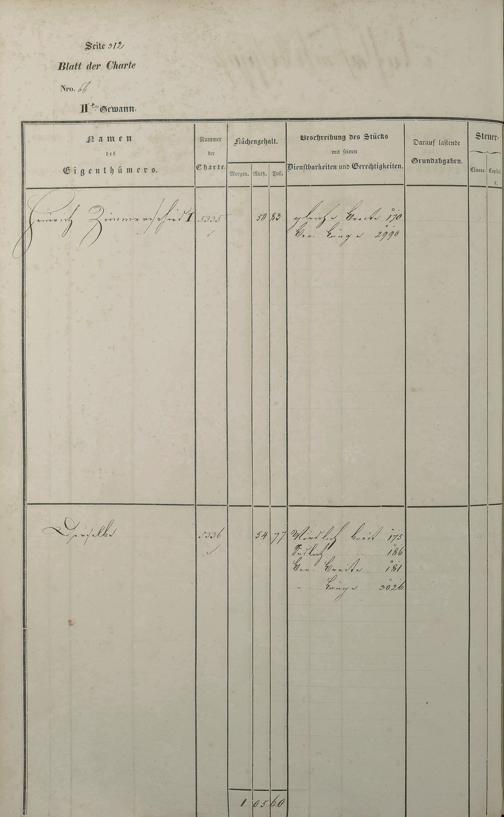 Seite 312
Blatt der Charte
Nro.
IIte Gewann.
Namen
des
Eigenthümers.
Nummer
der
Charte.
Flächengehalt.
Morgen. Ruth. Fuß.
Beschreibung des Stücks
mit seinen
Dienstbarkeiten und Gerechtigkeiten.
Darauf lastende
Grundabgaben.
Steuer-
Classe. Capital.
Heinrich Zimmerschied I 5335 50 83 gleiche Breite 170
Ber. Länge 2990
Derselbe 5336 54 77 Nördlich breit 175
Südlich 186
Ber. Breite 181
" Länge 3026
1 05 60